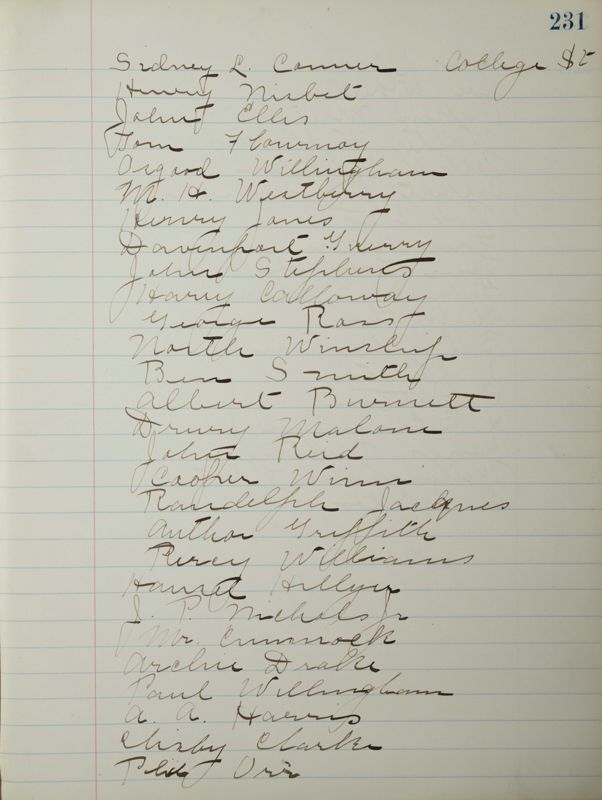 231
Sidney L. Conner College St
Henry Nisbet
John Ellis
Tom Flournoy
Osgood Willingham
M. H. Westberry
Henry Jones
Davenport Guerry
John Stephens
Harry Calloway
George Ross
North Winship
Ben Smith
Albert Burnett
Drury Malone
John Reid
Cooper Winn
Randolph Jacques
Author Griffith
Percy Williams
Hillyer
J. P. Nichols Jr
Mr. Cummock
Archie Drake
Paul Willingham
A. A. Harris
Clisby Clarke
Orr